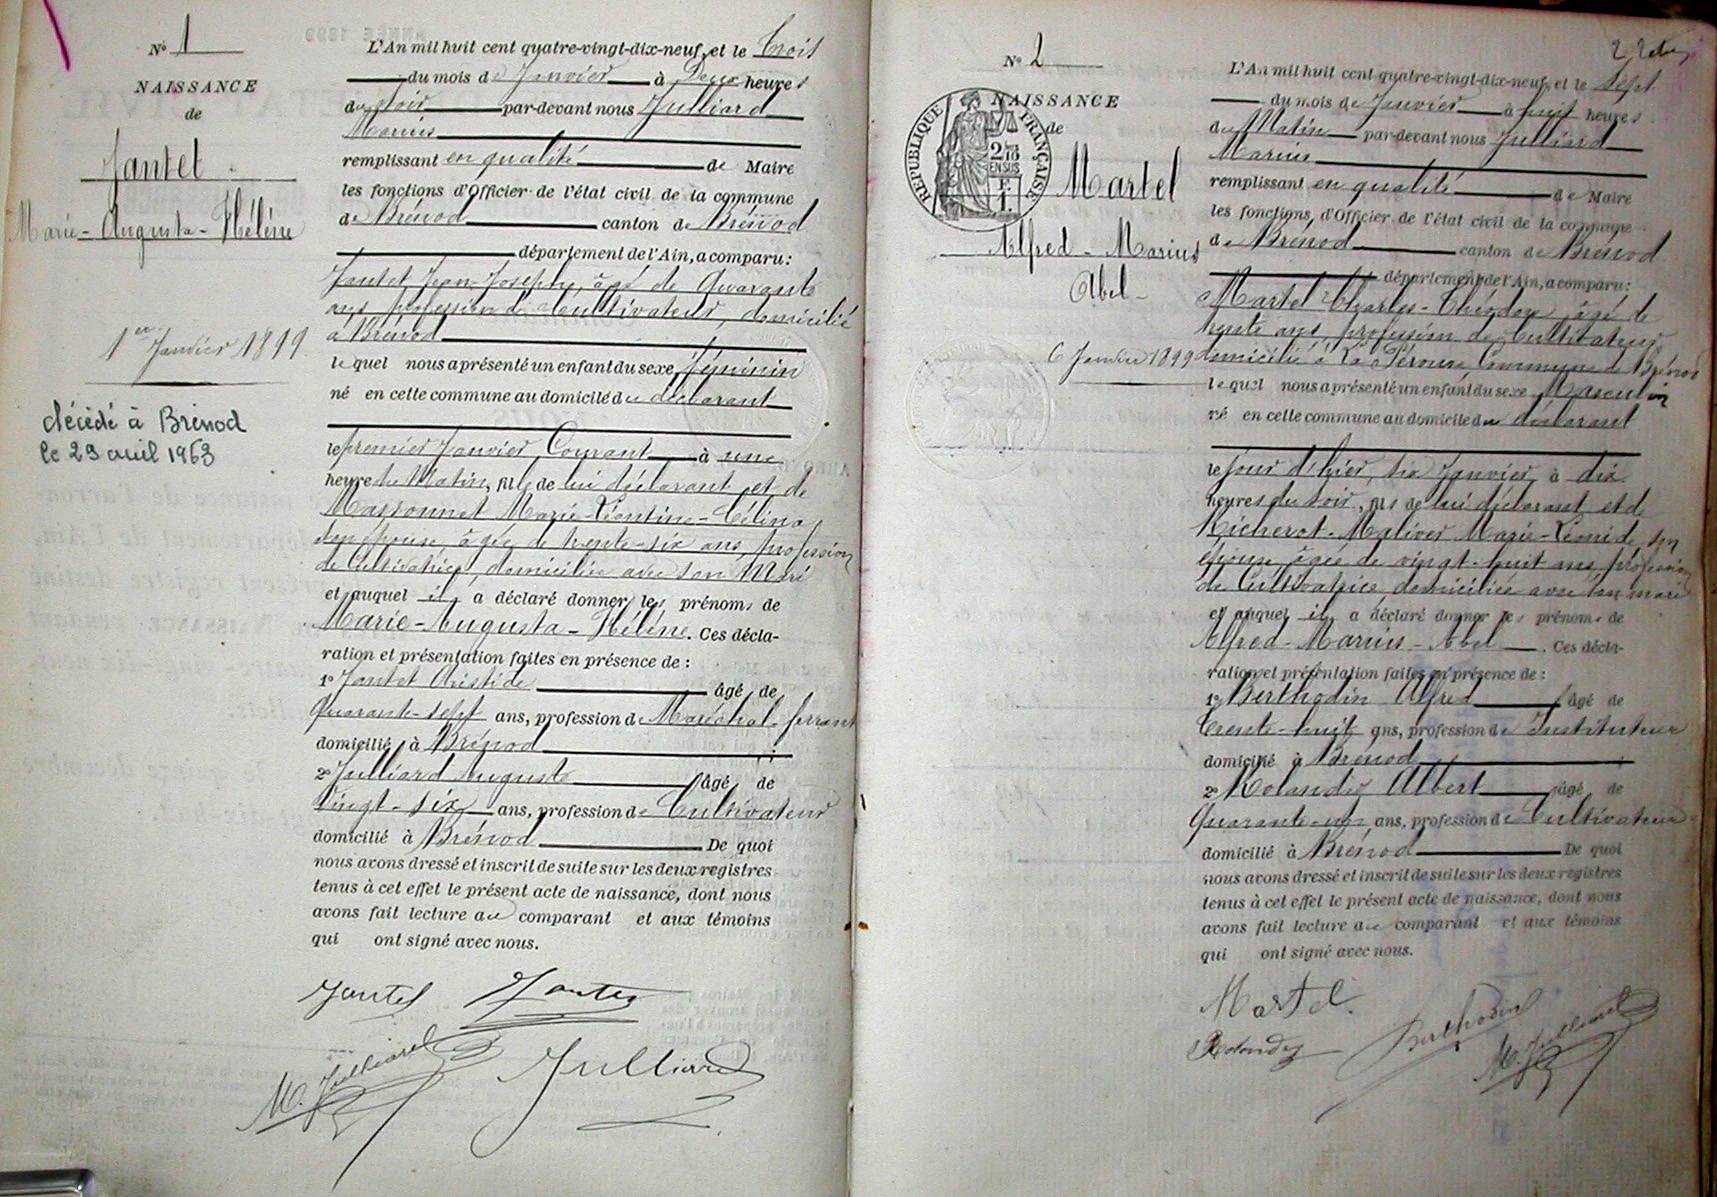 N° 1
NAISSANCE
de
Jantet
Marie-Augusta-Hélène
1er Janvier 1899
décédé à Brénod
le 29 avril 1963
L'An mil huit cent quatre-vingt-dix-neuf, et le Trois
du mois de Janvier à Deux heures
du soir par-devant nous Julliard
Marius
remplissant en qualité de Maire
les fonctions d'Officier de l'état civil de la commune
de Brénod canton de Brénod
département de l'Ain, a comparu:
Jantet Jean-Joseph, âgé de Quarante
ans, profession de Cultivateur, domicilié
à Brénod
lequel nous a présenté un enfant du sexe féminin
né en cette commune au domicile du déclarant
le premier Janvier Courant à une
heure du Matin, fille de lui déclarant et de
Massonnet Marie-Léontine-Célina,
son épouse, âgée de trente-six ans, profession
de Cultivatrice, domiciliée avec son Mari
et auquel il a déclaré donner les prénoms de
Marie-Augusta-Hélène. Ces décla-
ration et présentation faites en présence de:
1° Jantet Aristide âgé de
Quarante-sept ans, profession de Maréchal-ferrant
domicilié à Brénod
2° Julliard Auguste âgé de
Vingt-six ans, profession de Cultivateur
domicilié à Brénod De quoi
nous avons dressé et inscrit de suite sur les deux registres
tenus à cet effet le présent acte de naissance, dont nous
avons fait lecture au comparant et aux témoins
qui ont signé avec nous.
Jantet Jantet
M. Julliard Julliard
N° 2
NAISSANCE
de
RÉPUBLIQUE FRANÇAISE
Martel
Alfred-Marius
Abel
6 Janvier 1899
L'An mil huit cent quatre-vingt-dix-neuf, et le Sept
du mois de Janvier à huit heures
du Matin par-devant nous Julliard
Marius
remplissant en qualité de Maire
les fonctions d'Officier de l'état civil de la commune
de Brénod canton de Brénod
département de l'Ain, a comparu:
Martel Charles-Théodore, âgé de
trente ans, profession de Cultivateur
domicilié à La Pérouse Commune de Brénod
lequel nous a présenté un enfant du sexe Masculin
né en cette commune au domicile du déclarant
le jour d'hier, six Janvier, à dix
heures du soir, fils de lui déclarant et de
Richerot-Malivet Marie-Léonide, son
épouse, âgée de vingt-huit ans, profession
de Cultivatrice, domiciliée avec son mari
et auquel il a déclaré donner les prénoms de
Alfred-Marius-Abel. Ces décla-
ration et présentation faites en présence de:
1° Berthodin Alfred âgé de
Trente-huit ans, profession de Instituteur
domicilié à Brénod
2° Rolandez Albert âgé de
Quarante-un ans, profession de Cultivateur
domicilié à Brénod De quoi
nous avons dressé et inscrit de suite sur les deux registres
tenus à cet effet le présent acte de naissance, dont nous
avons fait lecture au comparant et aux témoins
qui ont signé avec nous.
Martel.
Rolandez Berthodin M. Julliard